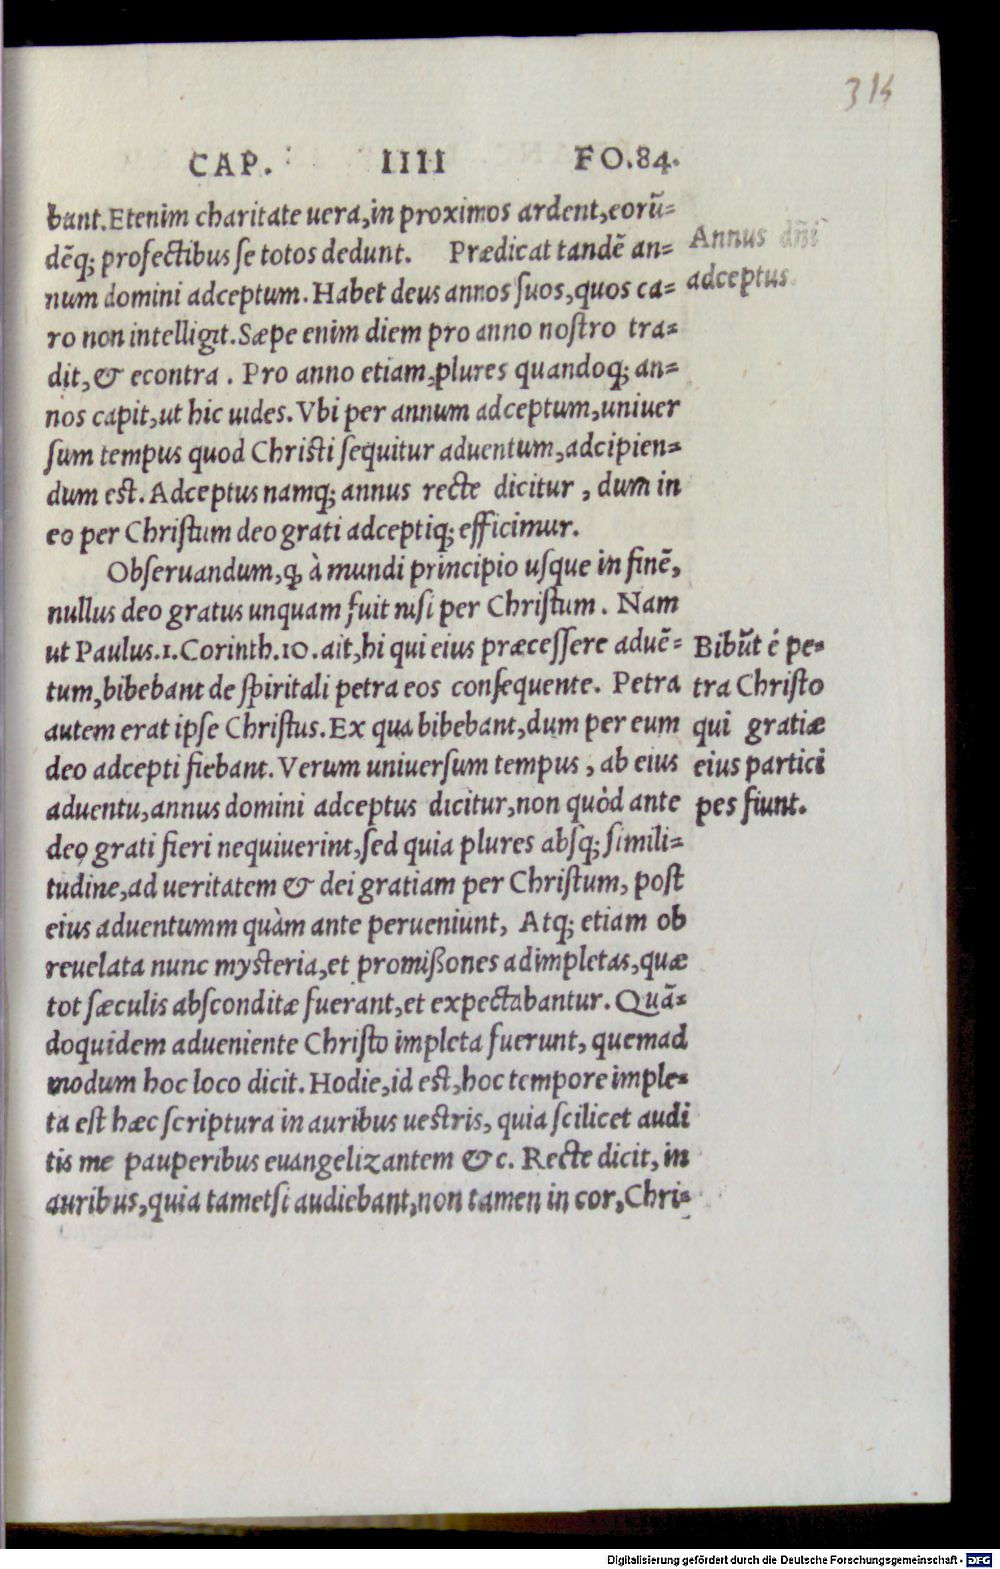 315
CAP. IIII FO.84.
bant.Etenim charitate uera,in proximos ardent,eorũ=
dẽq; profectibus se totos dedunt. Prædicat tandẽ an=
num domini adceptum.Habet deus annos suos,quos ca=
ro non intelligit.Sæpe enim diem pro anno nostro tra=
dit,& econtra . Pro anno etiam,plures quandoq; an=
nos capit,ut hic uides.Vbi per annum adceptum,uniuer
sum tempus quod Christi sequitur aduentum,adcipien=
dum est.Adceptus namq; annus recte dicitur , dum in
eo per Christum deo grati adceptiq; efficimur.
Obseruandum,ꝙ à mundi principio usque in finẽ,
nullus deo gratus unquam fuit nisi per Christum. Nam
ut Paulus.1.Corinth.10.ait,hi qui eius præcessere aduẽ=
tum,bibebant de spiritali petra eos consequente. Petra
autem erat ipse Christus.Ex qua bibebant,dum per eum
deo adcepti fiebant.Verum uniuersum tempus , ab eius
aduentu,annus domini adceptus dicitur,non quòd ante
deo grati fieri nequiuerint,sed quia plures absq; simili=
tudine,ad ueritatem & dei gratiam per Christum, post
eius aduentumm quàm ante perueniunt, Atq; etiam ob
reuelata nunc mysteria,et promißones adimpletas,quæ
tot sæculis absconditæ fuerant,et expectabantur. Quã=
doquidem adueniente Christo impleta fuerunt, quemad
modum hoc loco dicit. Hodie,id est,hoc tempore imple=
ta est hæc scriptura in auribus uestris, quia scilicet audi
tis me pauperibus euangelizantem &c. Recte dicit, in
auribus,quia tametsi audiebant,non tamen in cor,Chri=
Annus dñi
adceptus.
Bibũt é pe=
tra Christo
qui gratiæ
eius partici
pes fiunt.
Digitalisierung gefördert durch die Deutsche Forschungsgemeinschaft - DFG